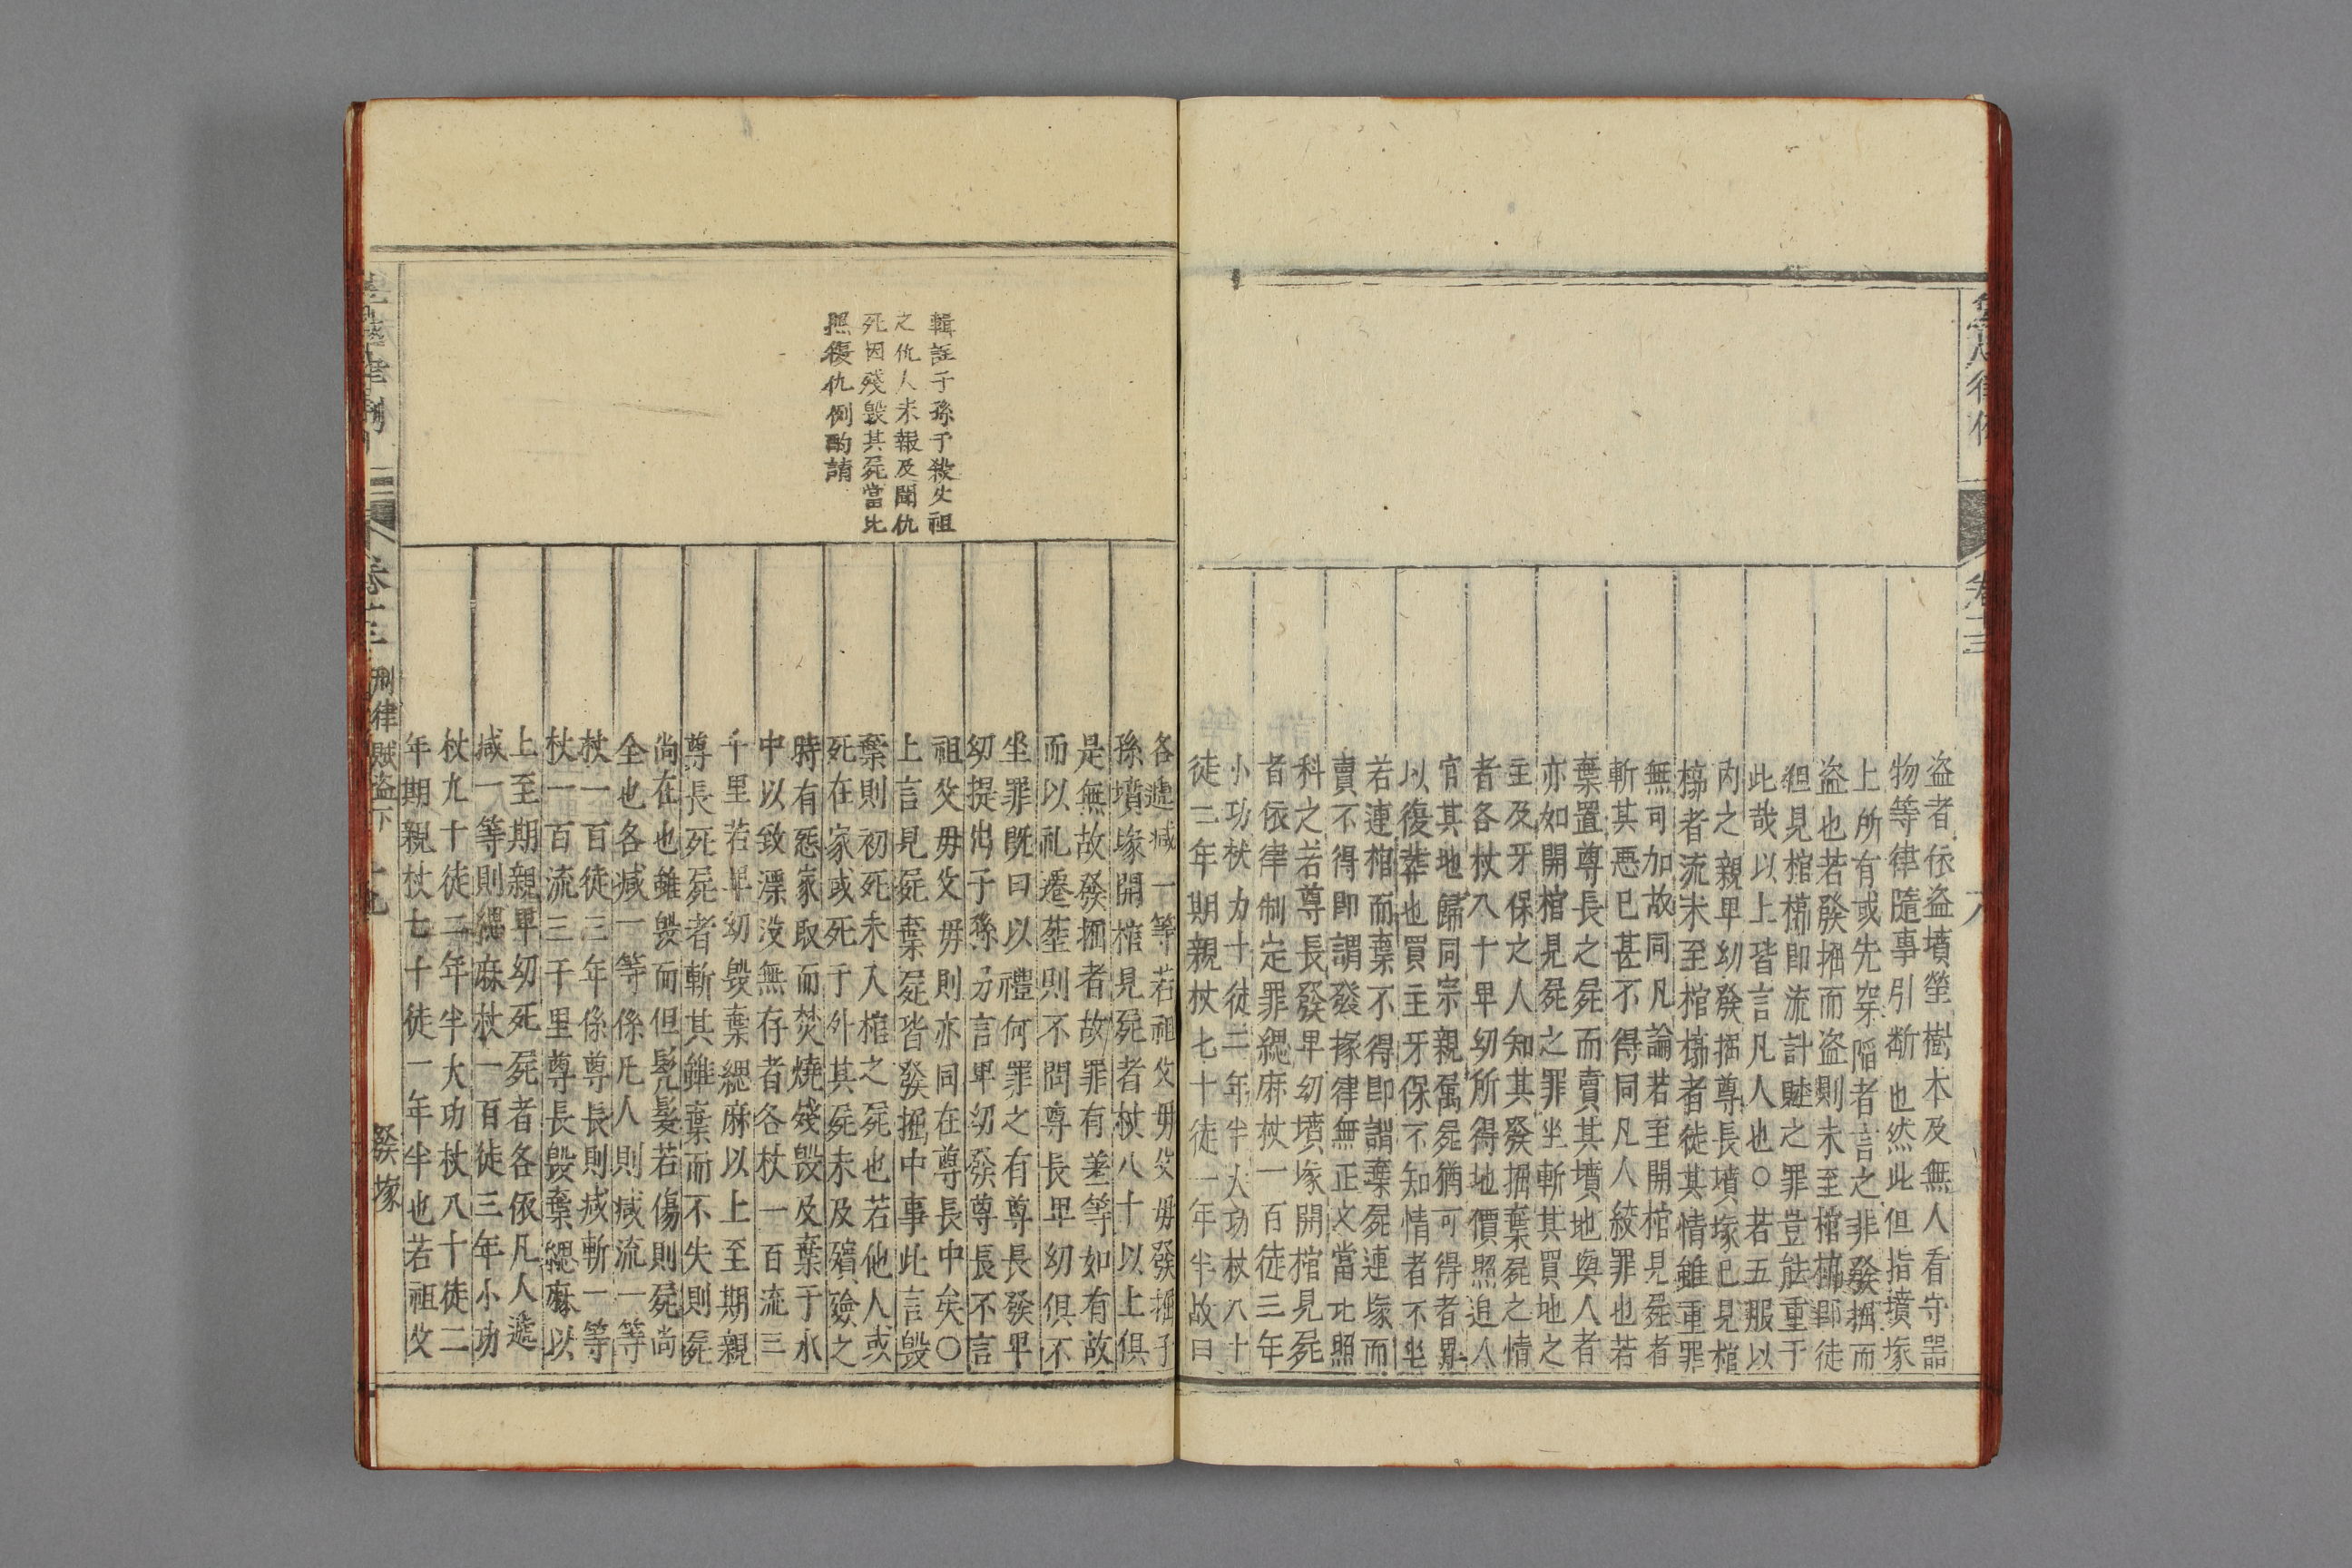 盜者依盜墳塋樹木及無人看守器
物等律隨事引斷也然此但指墳塚
上所有或先穿陷者言之非發掘而
盜也若發掘而盜則未至棺槨即徒
但見棺槨即流計賍之罪豈能重于
此哉以上皆言凡人也○若五服以
內之親卑幼發掘尊長墳塚已見棺
槨者流未至棺槨者徒其情雖重罪
無可加故同凡論若至開棺見屍者
斬其惡已甚不得同凡人絞罪也若
棄置尊長之屍而賣其墳地與人者
亦如開棺見屍之罪坐斬其買地之
主及牙保之人知其發掘棄屍之情
者各杖八十卑幼所得地價照追入
官其地歸同宗親屬屍猶可得者畀
以復葬也買主牙保不知情者不坐
若連棺而棄不得即謂棄屍連塚而
賣不得即謂發塚律無正文當比照
科之若尊長發卑幼墳塚開棺見屍
者依律制定罪緦麻杖一百徒三年
小功杖九十徒二年半大功杖八十
徒二年期親杖七十徒一年半故曰
卷二三
輯註子孫于殺父祖
之仇人未報及聞仇
死因殘毀其屍當比
照復仇例酌請
各遞減一等若祖父母父母發掘子
孫墳塚開棺見屍者杖八十以上俱
是無故發掘者故罪有差等如有故
而以礼遷塟則不問尊長卑幼俱不
坐罪既曰以禮何罪之有尊長發卑
幼提出子孫另言卑幼發尊長不言
祖父母父母則亦同在尊長中矣○
上言見屍棄屍皆發掘中事此言毀
棄則初死未入棺之屍也若他人或
死在家或死于外其死未及殯殮之
時有惡家取而焚燒殘毀及棄于水
中以致漂沒無存者各杖一百流三
千里若卑幼毀棄緦麻以上至期親
尊長死屍者斬其雖棄而不失則屍
尚在也雖毀而但髡髮若傷則屍尚
全也各減一等係凡人則減流一等
杖一百徒三年係尊長則減斬一等
杖一百流三千里尊長毀棄緦麻以
上至期親卑幼死屍者各依凡人遞
減一等則緦麻杖一百徒三年小功
杖九十徒二年半大功杖八十徒二
年期親杖七十徒一年半也若祖父
卷二三 刑律賊盜下 十九 發塚